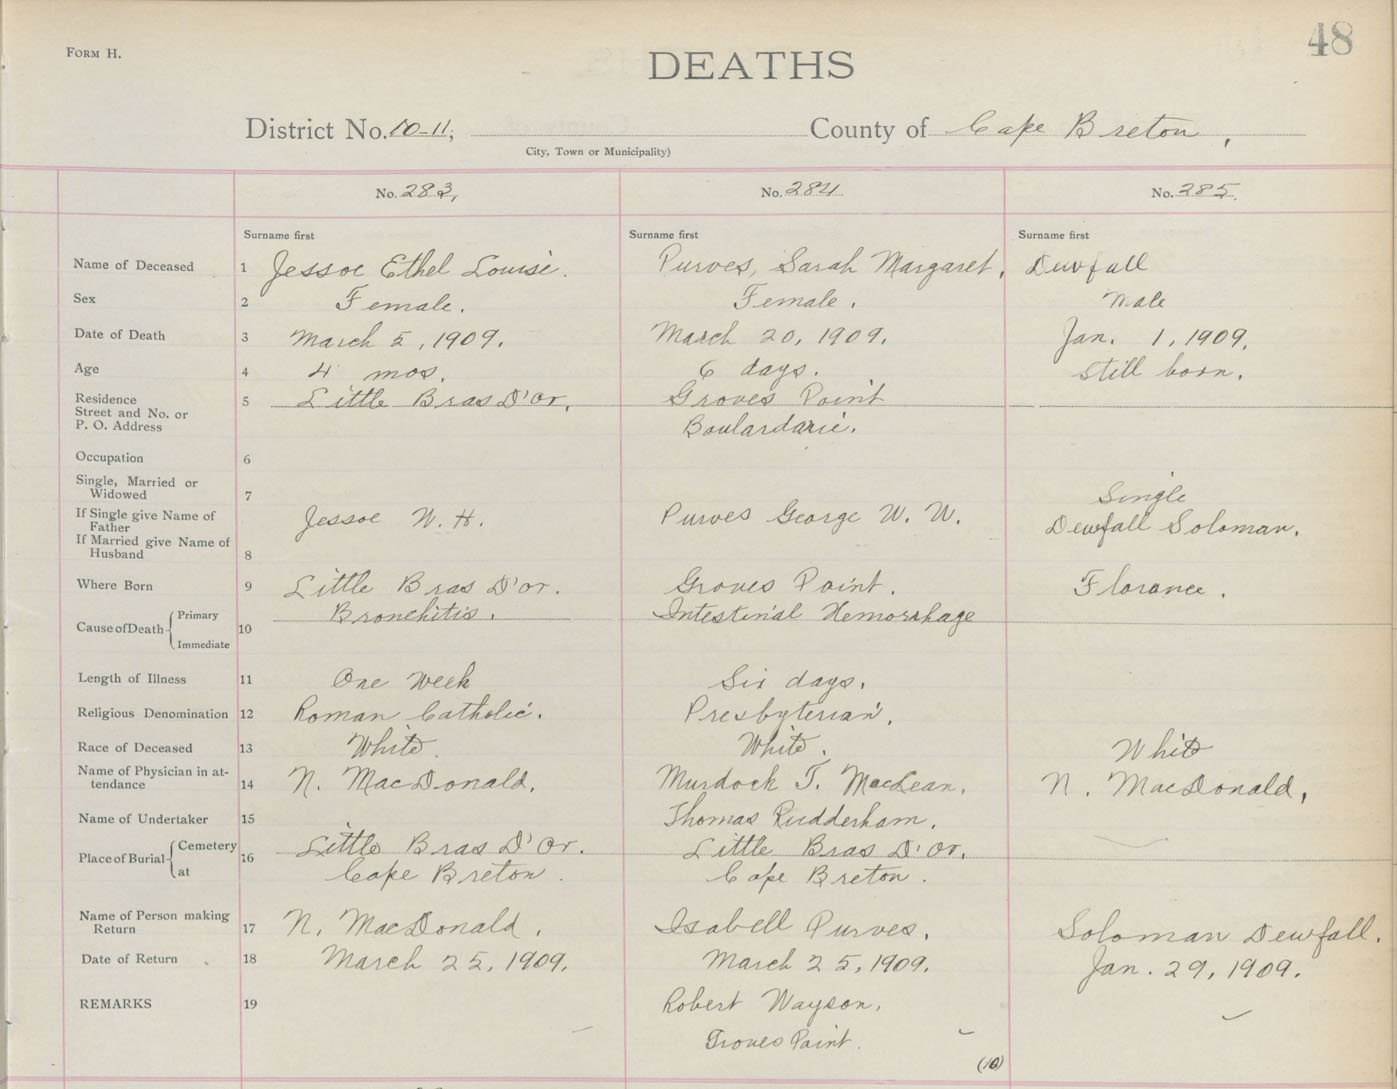 48
FORM H.
DEATHS
District No. 10-11, County of Cape Breton,
City, Town or Municipality)
No. 283, No. 284 No. 285.
Surname first Surname first Surname first
Name of Deceased 1 Jessoe Ethel Louise. Purves, Sarah Margaret, Dewfall
Sex 2 Female. Female. Male
Date of Death 3 March 5, 1909. March 20, 1909. Jan. 1, 1909.
Age 4 4 mos. 6 days. Still born.
Residence 5 Little Bras D'Or. Groves Point
Street and No. or
P. O. Address Boulardarie.
Occupation 6
Single, Married or
Widowed 7 Single
If Single give Name of Jessoe W. H. Purves George W. W. Dewfall Soloman.
Father
If Married give Name of
Husband 8
Where Born 9 Little Bras D'or. Groves Point. Florance.
Cause of Death Primary Bronchitis. Intestinal Hemorrhage
10
Immediate
Length of Illness 11 One Week Six days.
Religious Denomination 12 Roman Catholic. Presbyterian.
Race of Deceased 13 White. White. White
Name of Physician in at-
tendance 14 N. MacDonald. Murdock T. MacLean. N. MacDonald,
Name of Undertaker 15 Thomas Rudderham.
Place of Burial Cemetery 16 Little Bras D'Or. Little Bras D'Or.
at Cape Breton. Cape Breton.
Name of Person making
Return 17 N. MacDonald. Isabell Purves. Soloman Dewfall.
Date of Return 18 March 25, 1909. March 25, 1909. Jan. 29, 1909.
REMARKS 19 Robert Wayson,
Groves Point.
(10)